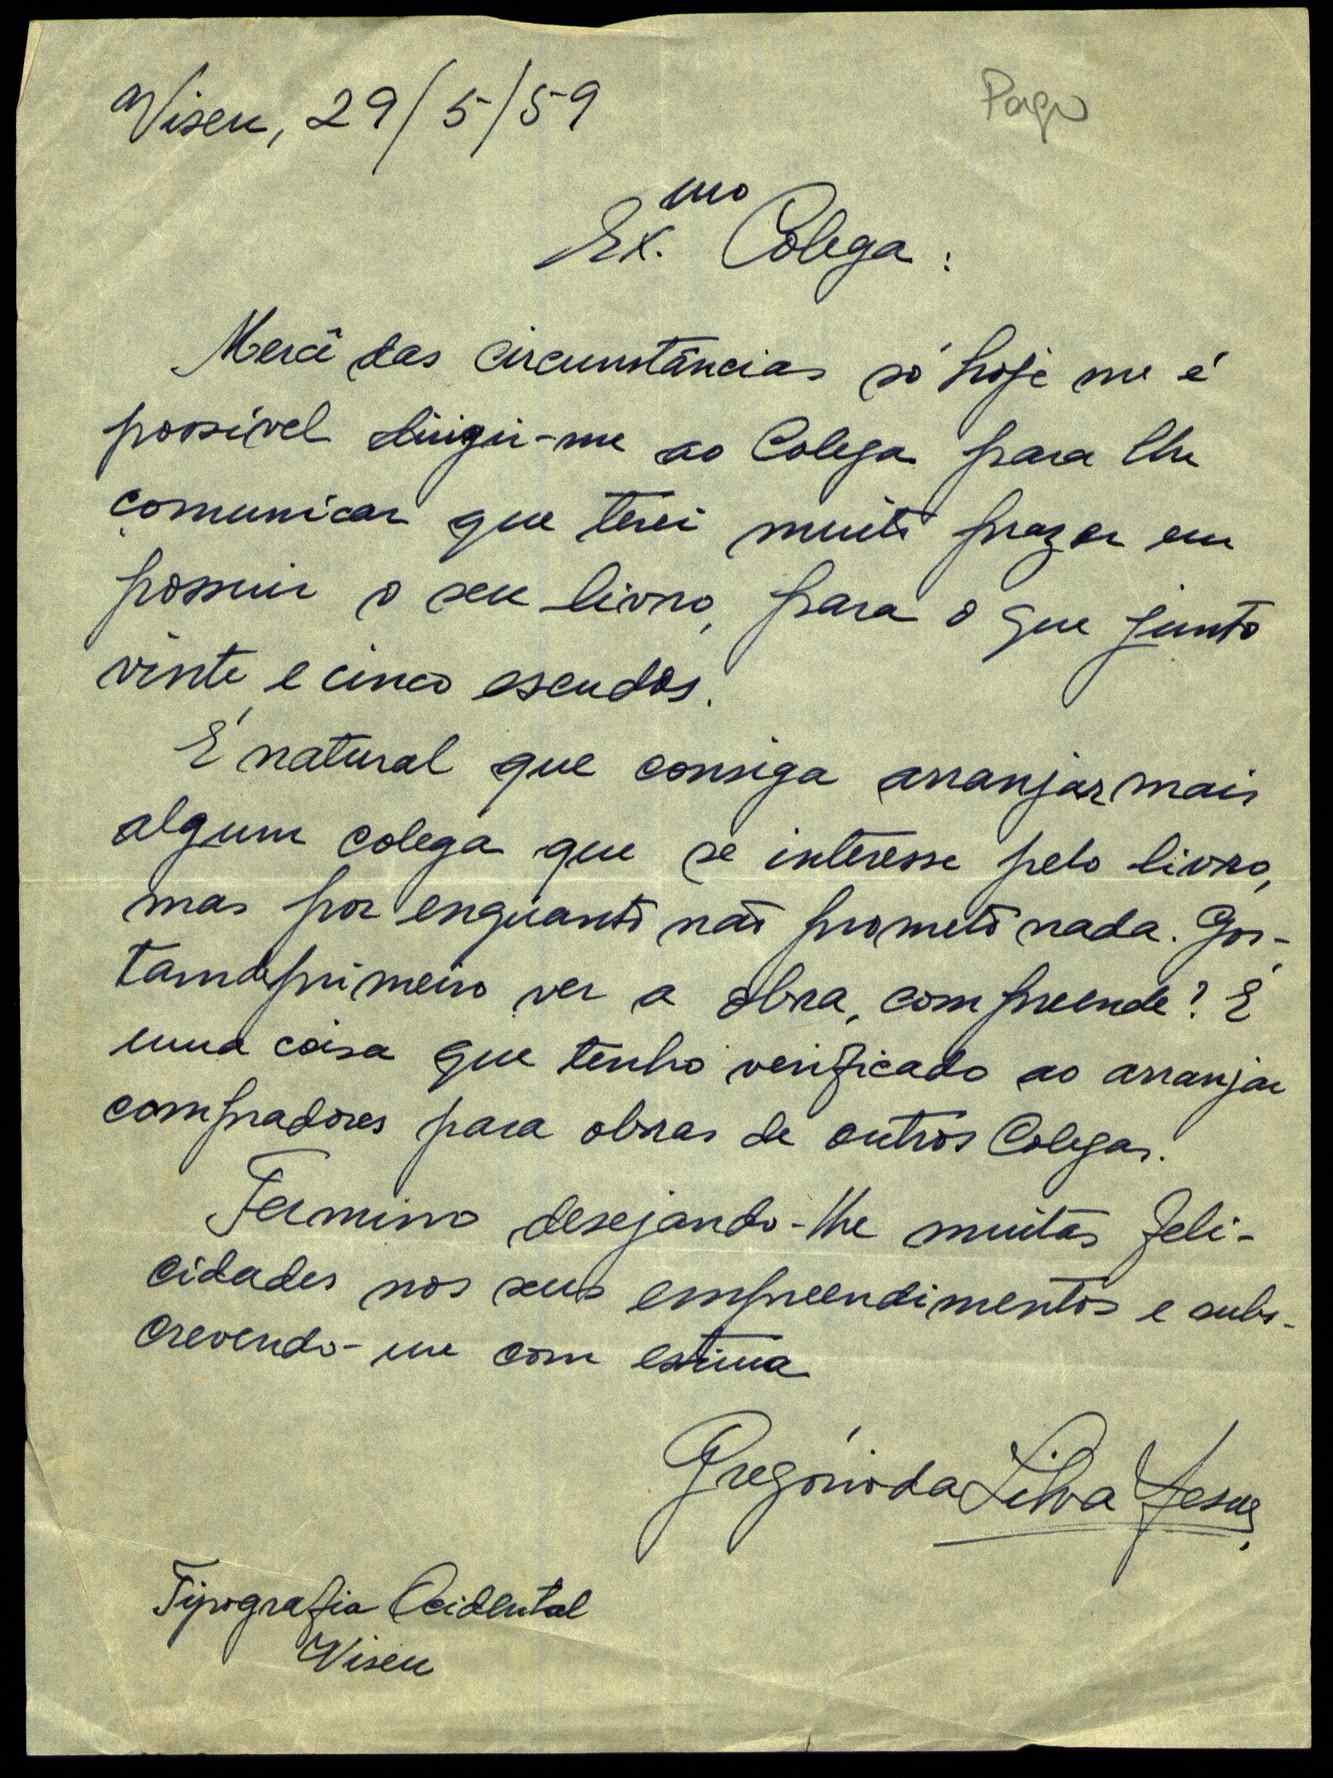 Viseu, 29/5/59
Pago
Ex.mo Colega:
Mercê das circunstâncias só hoje me é
possível dirigir-me ao Colega para lhe
comunicar que terei muito prazer em
possuir o seu livro, para o que junto
vinte e cinco escudos.
É natural que consiga arranjar mais
algum colega que se interesse pelo livro,
mas por enquanto não prometo nada. Gos-
tam primeiro ver a obra, compreende? É
uma coisa que tenho verificado ao arranjar
compradores para obras de outros Colegas.
Termino desejando-lhe muitas feli-
cidades nos seus empreendimentos e subs-
crevendo-me com estima
Gregório da Silva Jesus
Tipografia Ocidental
Viseu